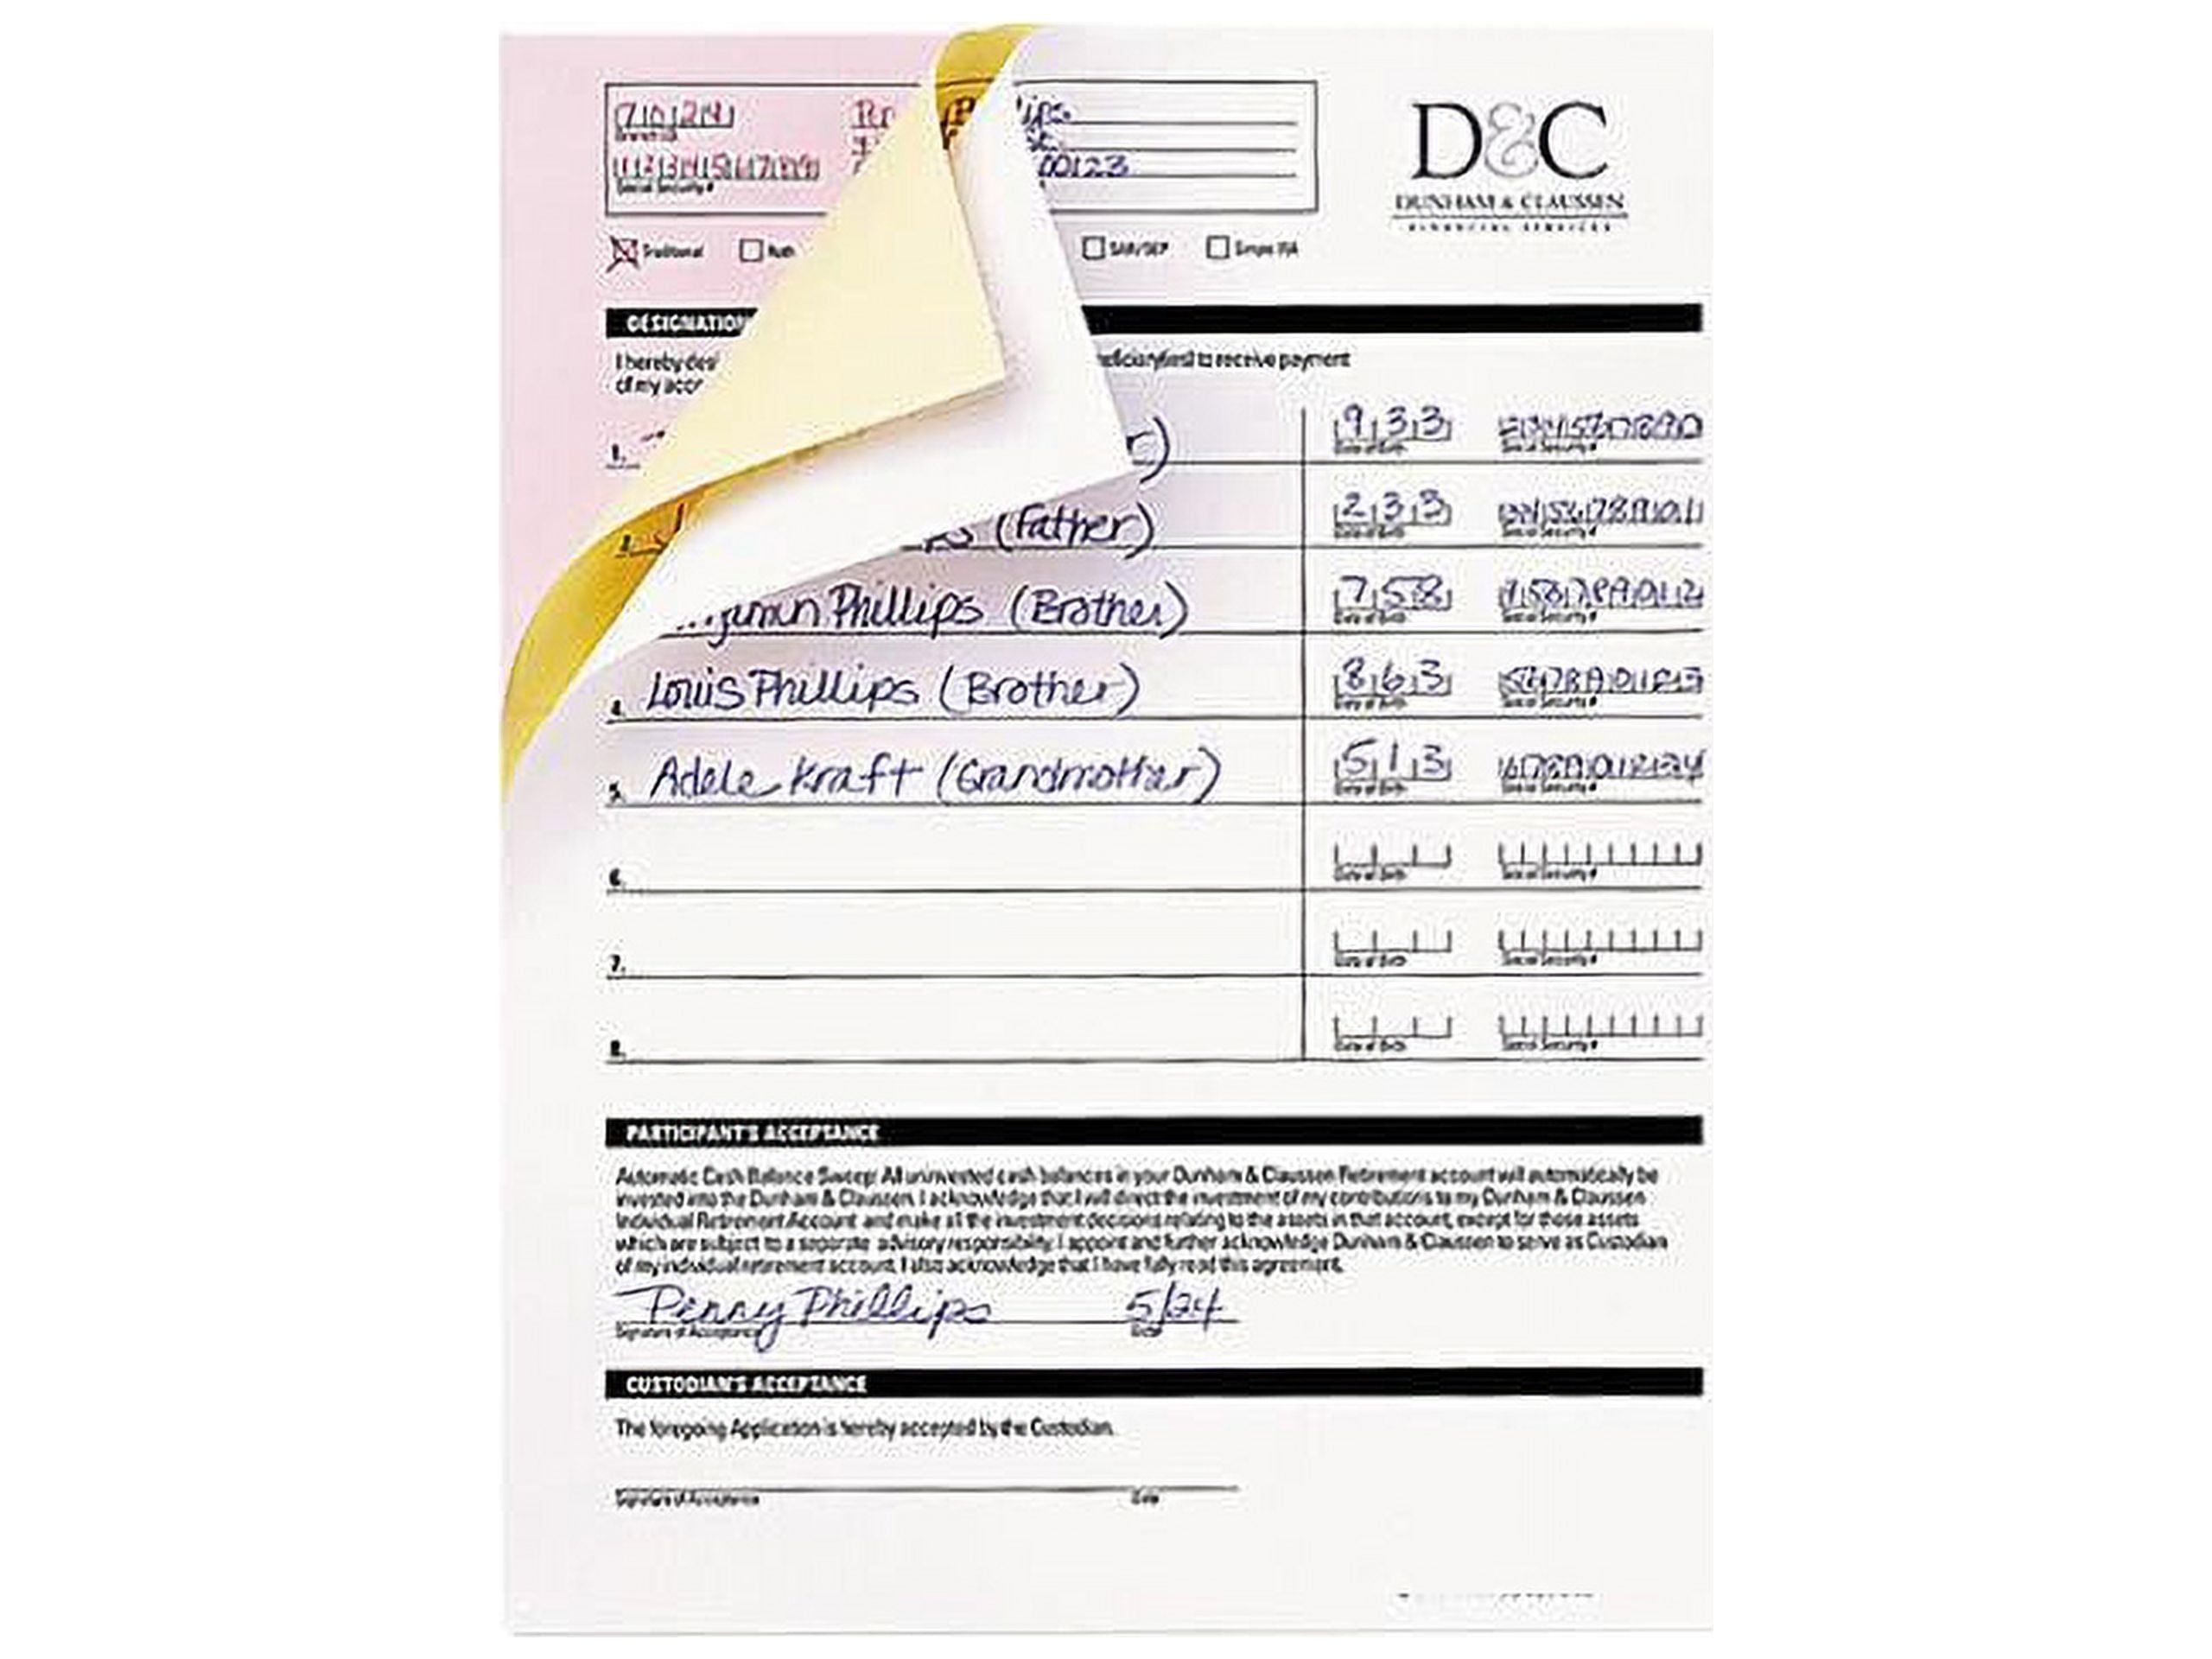 7 0 2 4
lips
00123
Social Security #
D&C
DUNHAM & CLAUSSEN
FINANCIAL SERVICES
Traditional Roth SAR/SEP Simple IRA
DESIGNATION
I hereby desi to receive payment
of my acc
1. 9 3 3
Date of Birth Social Security #
2. (Father) 2 3 3
Date of Birth Social Security #
Phillips (Brother) 7 5 8
Date of Birth Social Security #
4. Louis Phillips (Brother) 8 6 3
Date of Birth Social Security #
5. Adele Kraft (Grandmother) 5 1 3
Date of Birth Social Security #
6.
Date of Birth Social Security #
7.
Date of Birth Social Security #
8.
Date of Birth Social Security #
PARTICIPANT'S ACCEPTANCE
Automatic Cash Balance Sweep: All uninvested cash balances in your Dunham & Claussen Retirement account will automatically be
invested into the Dunham & Claussen. I acknowledge that I will direct the investment of my contributions to my Dunham & Claussen
Individual Retirement Account and make all the investment decisions relating to the assets in that account, except for those assets
which are subject to a separate advisory responsibility. I appoint and further acknowledge Dunham & Claussen to serve as Custodian
of my individual retirement account. I also acknowledge that I have fully read this agreement.
Penny Phillips 5/24
Signature of Acceptance Date
CUSTODIAN'S ACCEPTANCE
The foregoing Application is hereby accepted by the Custodian.
Signature of Acceptance Date